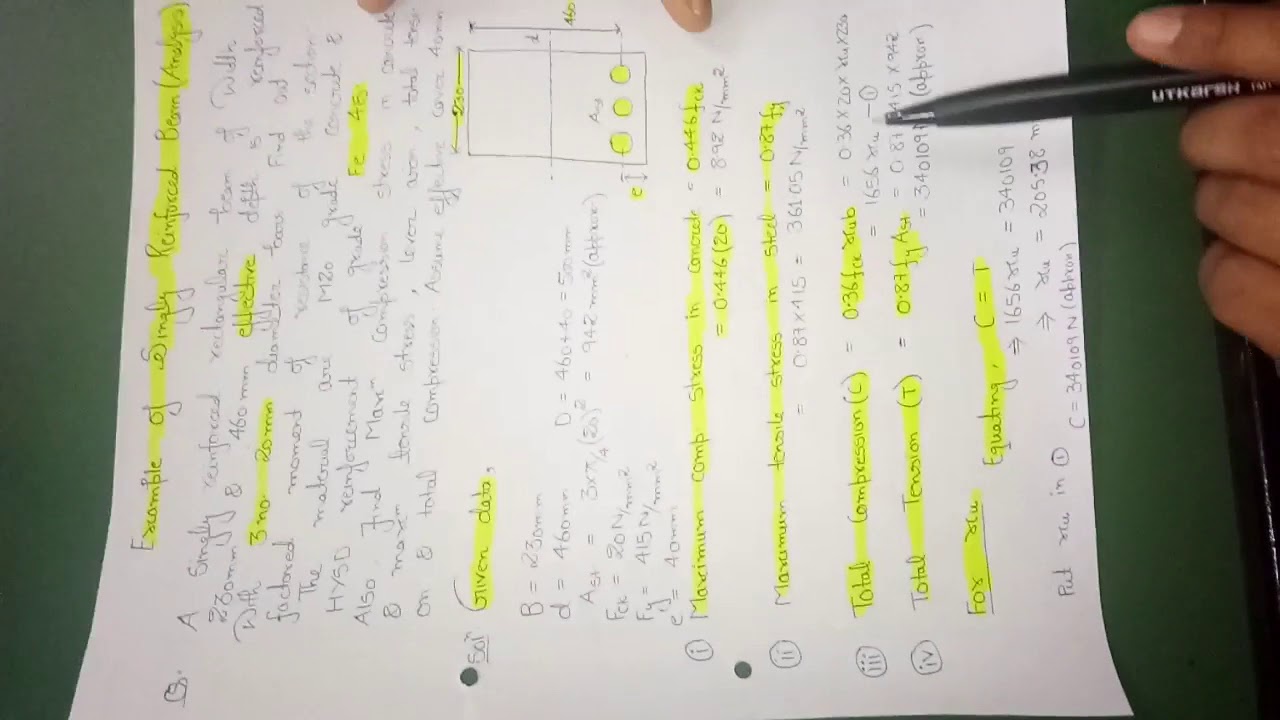 Example of Singly Reinforced Beam (Analysis)
Q. A Singly reinforced rectangular beam of width
230mm & 460mm effective depth is reinforced
with 3 no. 20mm diameter bars Find out
factored moment of resistance of the section
The material are M20 grade concrete &
HYSD reinforcement of grade Fe 415
Also, find Maxm compression stress in concrete
& maxm tensile stress, lever arm, total tens-
on & total compression, Assume effective cover 40mm
Soln Given data,
B = 230mm
d = 460mm D = 460+40 = 500mm
Ast = 3xπ/4 (20)² = 942 mm² (approx)
Fck = 20N/mm²
Fy = 415N/mm²
e = 40mm
230
d
460
Ast
e
(i) Maximum comp stress in concrete = 0.446fck
= 0.446(20) = 892 N/mm²
(ii) Maximum tensile stress in steel = 0.87fy
= 0.87x415 = 36105 N/mm²
(iii) Total Compression (C) = 0.36fck xub = 0.36x20x xu x230
= 1656 xu — ①
(iv) Total Tension (T) = 0.87fyAst = 0.87x415x942
= 340109N (approx)
For xu Equating, C = T
⇒ 1656xu = 340109
⇒ xu = 205.38 m
Put xu in ① C = 340109 N (approx)
UTKARSH